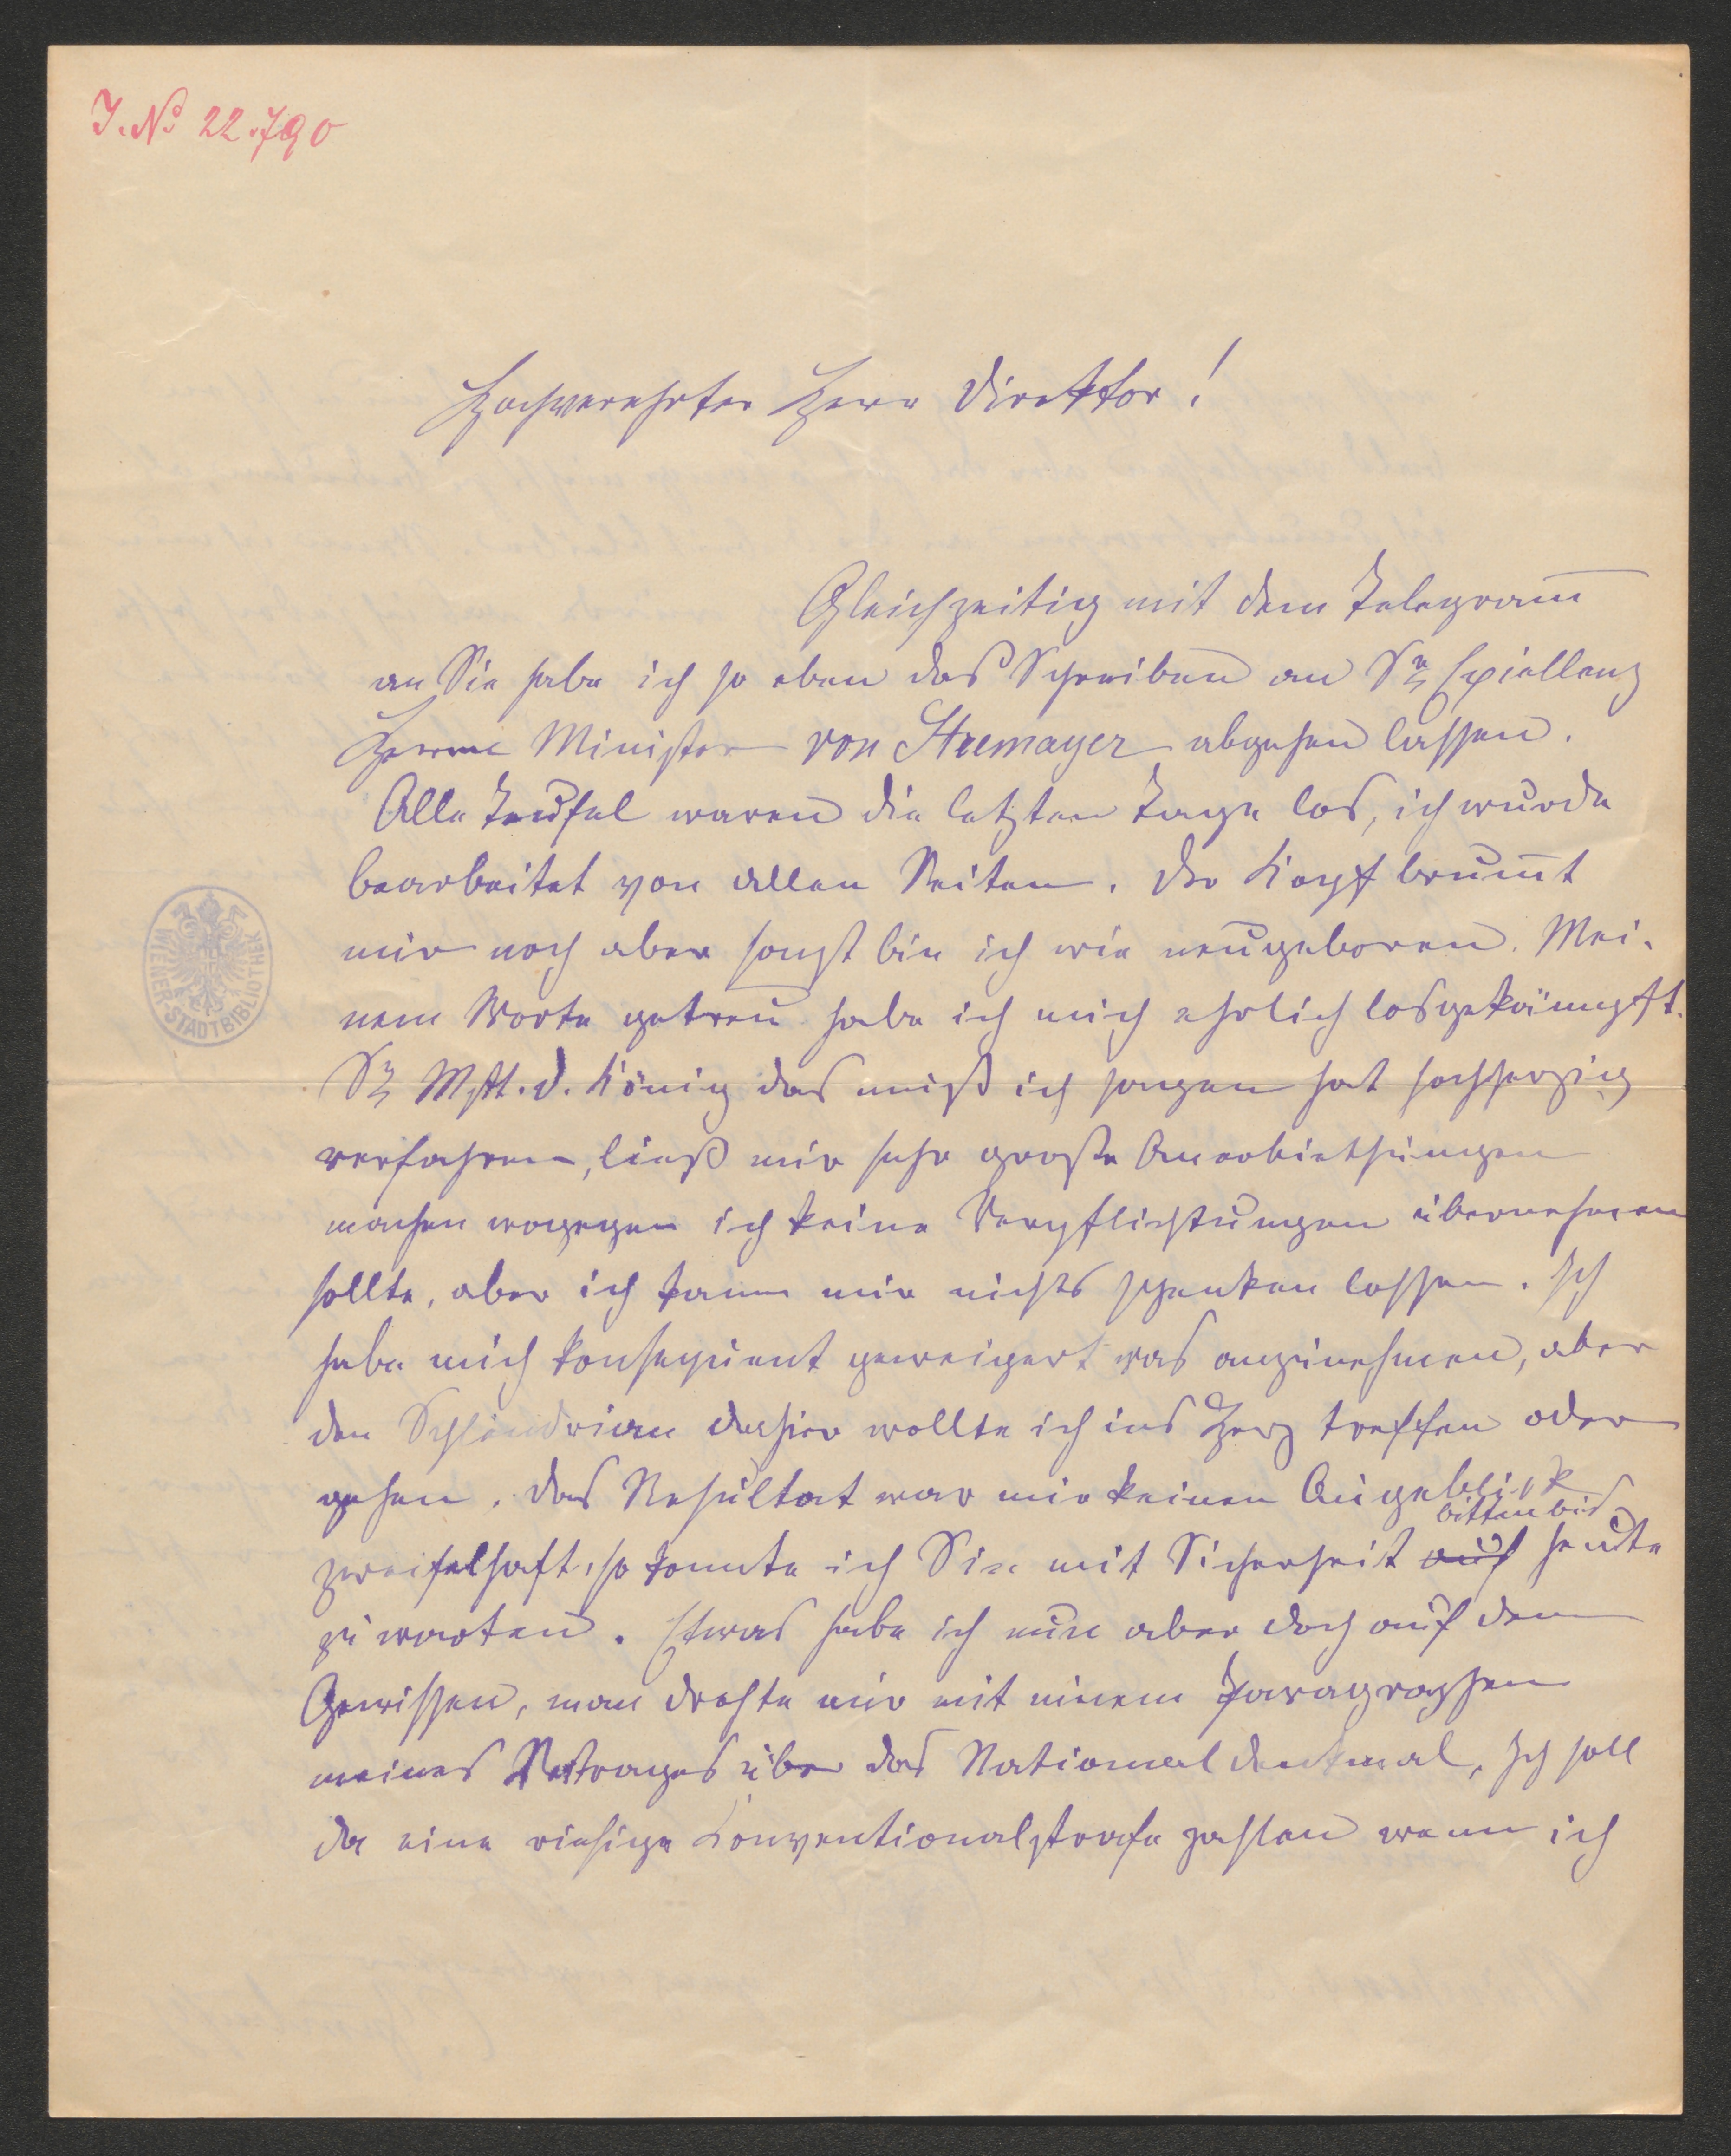 J. No 22.790
Hochverehrter Herr Direktor!
Gleichzeitig mit dem Telegram̅
an Sie habe ich so eben das Schreiben an Se Exiellenz
Herrn Minister von Stremayer abgehen lassen.
Alle Teufel waren die letzten Tage los, ich wurde
bearbeitet von allen Seiten. Der Kopf brum̅t
mir noch aber sonst bin ich wie neugeboren. Mei-
nem Worte getreu habe ich mich ehrlich losgekämpft.
Se Mjtt. d. König das muß ich sagen hat hochherzig
verfahren, ließ mir sehr große Anerbiethungen
machen wogegen ich keine Verpflichtungen übernehmen
sollte, aber ich kann mir nichts schenken lassen. Ich
habe mich konsequent geweigert was anzunehmen, aber
den Schlendrian dahier wollte ich ins Herz treffen oder
gehen. Das Resultat war mir keinen Augeblick
bitten bis
zweifelhaft, so konnte ich Sie mit Sicherheit auf heute
zu warten. Etwas habe ich nun aber doch auf dem
Gewissen, man drohte mir mit einem Paragraphen
meines Vertrages über das Nationaldenkmal, Ich soll
da eine riesige Konventionalstrafe zahlen wenn ich
WIENER-STADTBIBLIOTHEK